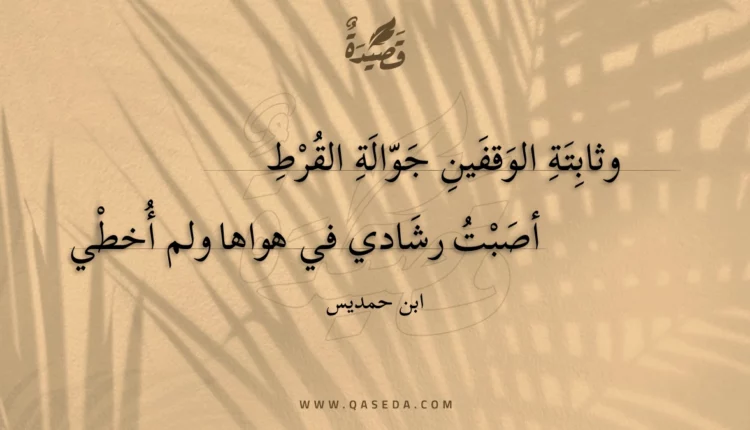 قَصِيْدَةٌ
وثابِتَةِ الوَقفَينِ جَوّالَةِ القُرْطِ
أصَبْتُ رشَادي في هواها ولم أُخطْي
ابن حمديس
WWW.QASEDA.COM